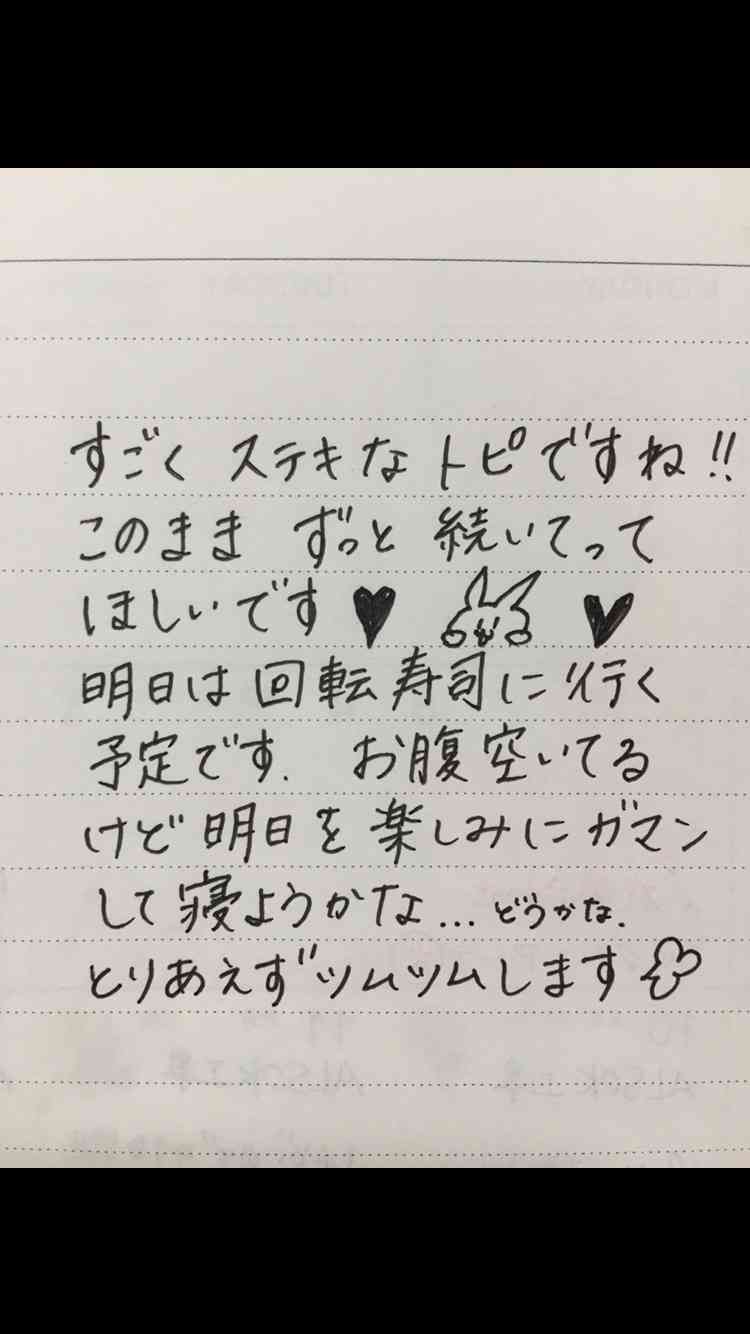 すごく ステキな トピですね!!
このまま ずっと 続いてって
ほしいです♥ ♥
明日は 回転寿司に 行く
予定です. お腹空いてる
けど 明日を 楽しみに ガマン
して 寝ようかな... どうかな.
とりあえず ツムツムします